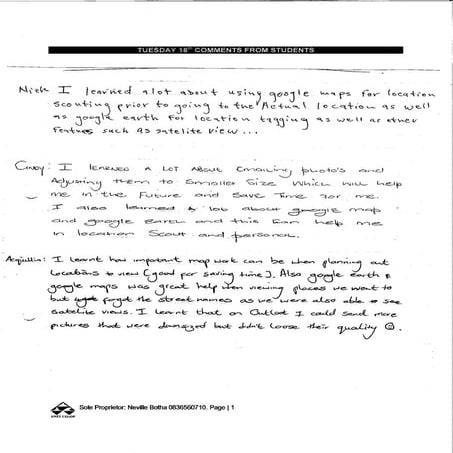 TUESDAY 18th COMMENTS FROM STUDENTS
Nick I learned alot about using google maps for location
scouting prior to going to the Actual location as well
as google earth for location tagging as well as other
features such as satelite view...
I LEARNED A LOT ABOUT Emailing photo's and
Adjusting them to Smaller Size Which will help
me in the Future and Save Time for me.
I also learned a lot about google map
and google earth and this can help me
in location Scout and personal.
I learnt how important map work can be when planning out
locations to view (good for saving time). Also google earth &
google maps was great help when viewing places we want to
but forgot the street names as we were also able to see
satelite views. I learnt that on Outlook I could send more
pictures that were damaged but didn't loose their quality ☺.
Sole Proprietor: Neville Botha 0836560710. Page | 1